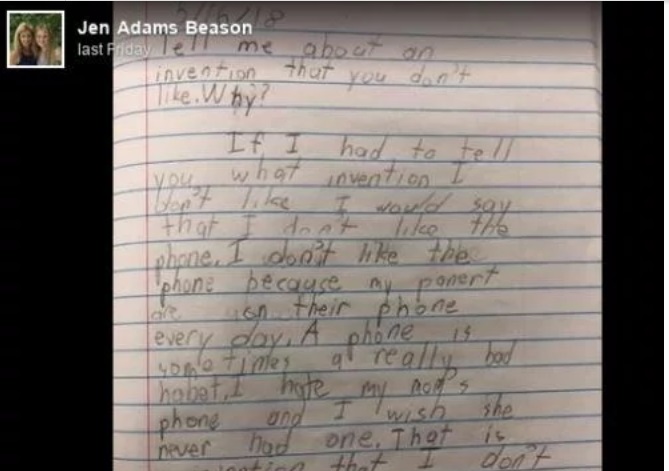 Jen Adams Beason
last Friday
5/16/18
Tell me about an
invention that you don't
like. Why?
If I had to tell
you what invention I
don't like I would say
that I don't like the
phone. I don't like the
phone because my panert
are on their phone
every day. A phone is
sometimes a really bad
habet. I hate my mom's
phone and I wish she
never had one. That is
invention that I don't